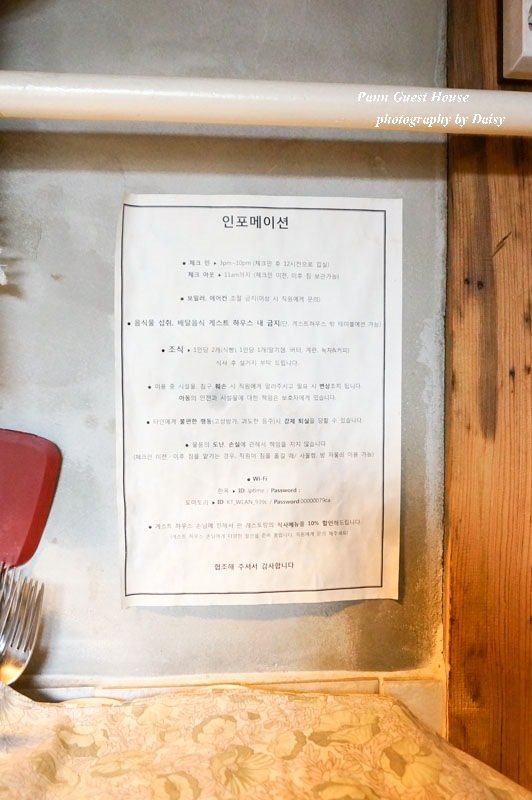 Pann Guest House
photography by Daisy
인포메이션
● 체크 인 ▸ 3pm~10pm (체크인 후 12시전으로 입실)
체크 아웃 ▸ 11am까지 (체크인 이전, 이후 짐 보관가능)
● 보일러, 에어컨 조절 금지(이상 시 직원에게 문의)
● 음식물 섭취, 배달음식 게스트 하우스 내 금지(단, 게스트하우스 밖 테이블에선 가능)
● 조식 ▸ 1인당 2개(식빵), 1인당 1개(딸기잼, 버터, 계란, 녹차&커피)
식사 후 설거지 부탁 드립니다.
● 이용 중 시설물, 침구 훼손 시 직원에게 알려주시고 필요 시 변상조치 됩니다.
아동의 안전과 시설물에 대한 책임은 보호자에게 있습니다.
● 타인에게 불편한 행동(고성방가, 과도한 음주)시 강제 퇴실을 당할 수 있습니다.
● 물품의 도난, 손실에 관해서 책임을 지지 않습니다
(체크인 이전·이후 짐을 맡기는 경우, 직원이 짐을 옮길 때/ 사물함, 방 자물쇠 이용 가능)
● Wi-Fi
한옥 ▸ ID: iptime / Password :
도미토리 ▸ ID: KT_WLAN_939c / Password:00000079ca
● 게스트 하우스 손님께 한해서 판 레스토랑의 식사메뉴를 10% 할인해드립니다.
협조해 주셔서 감사합니다